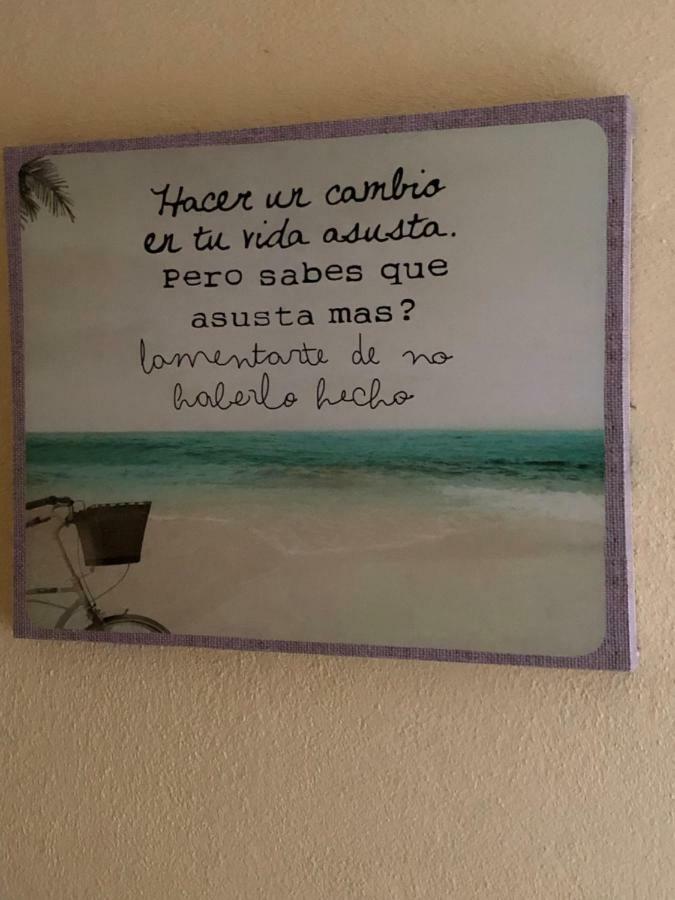 Hacer un cambio
en tu vida asusta.
Pero sabes que
asusta mas?
lamentarte de no
haberlo hecho